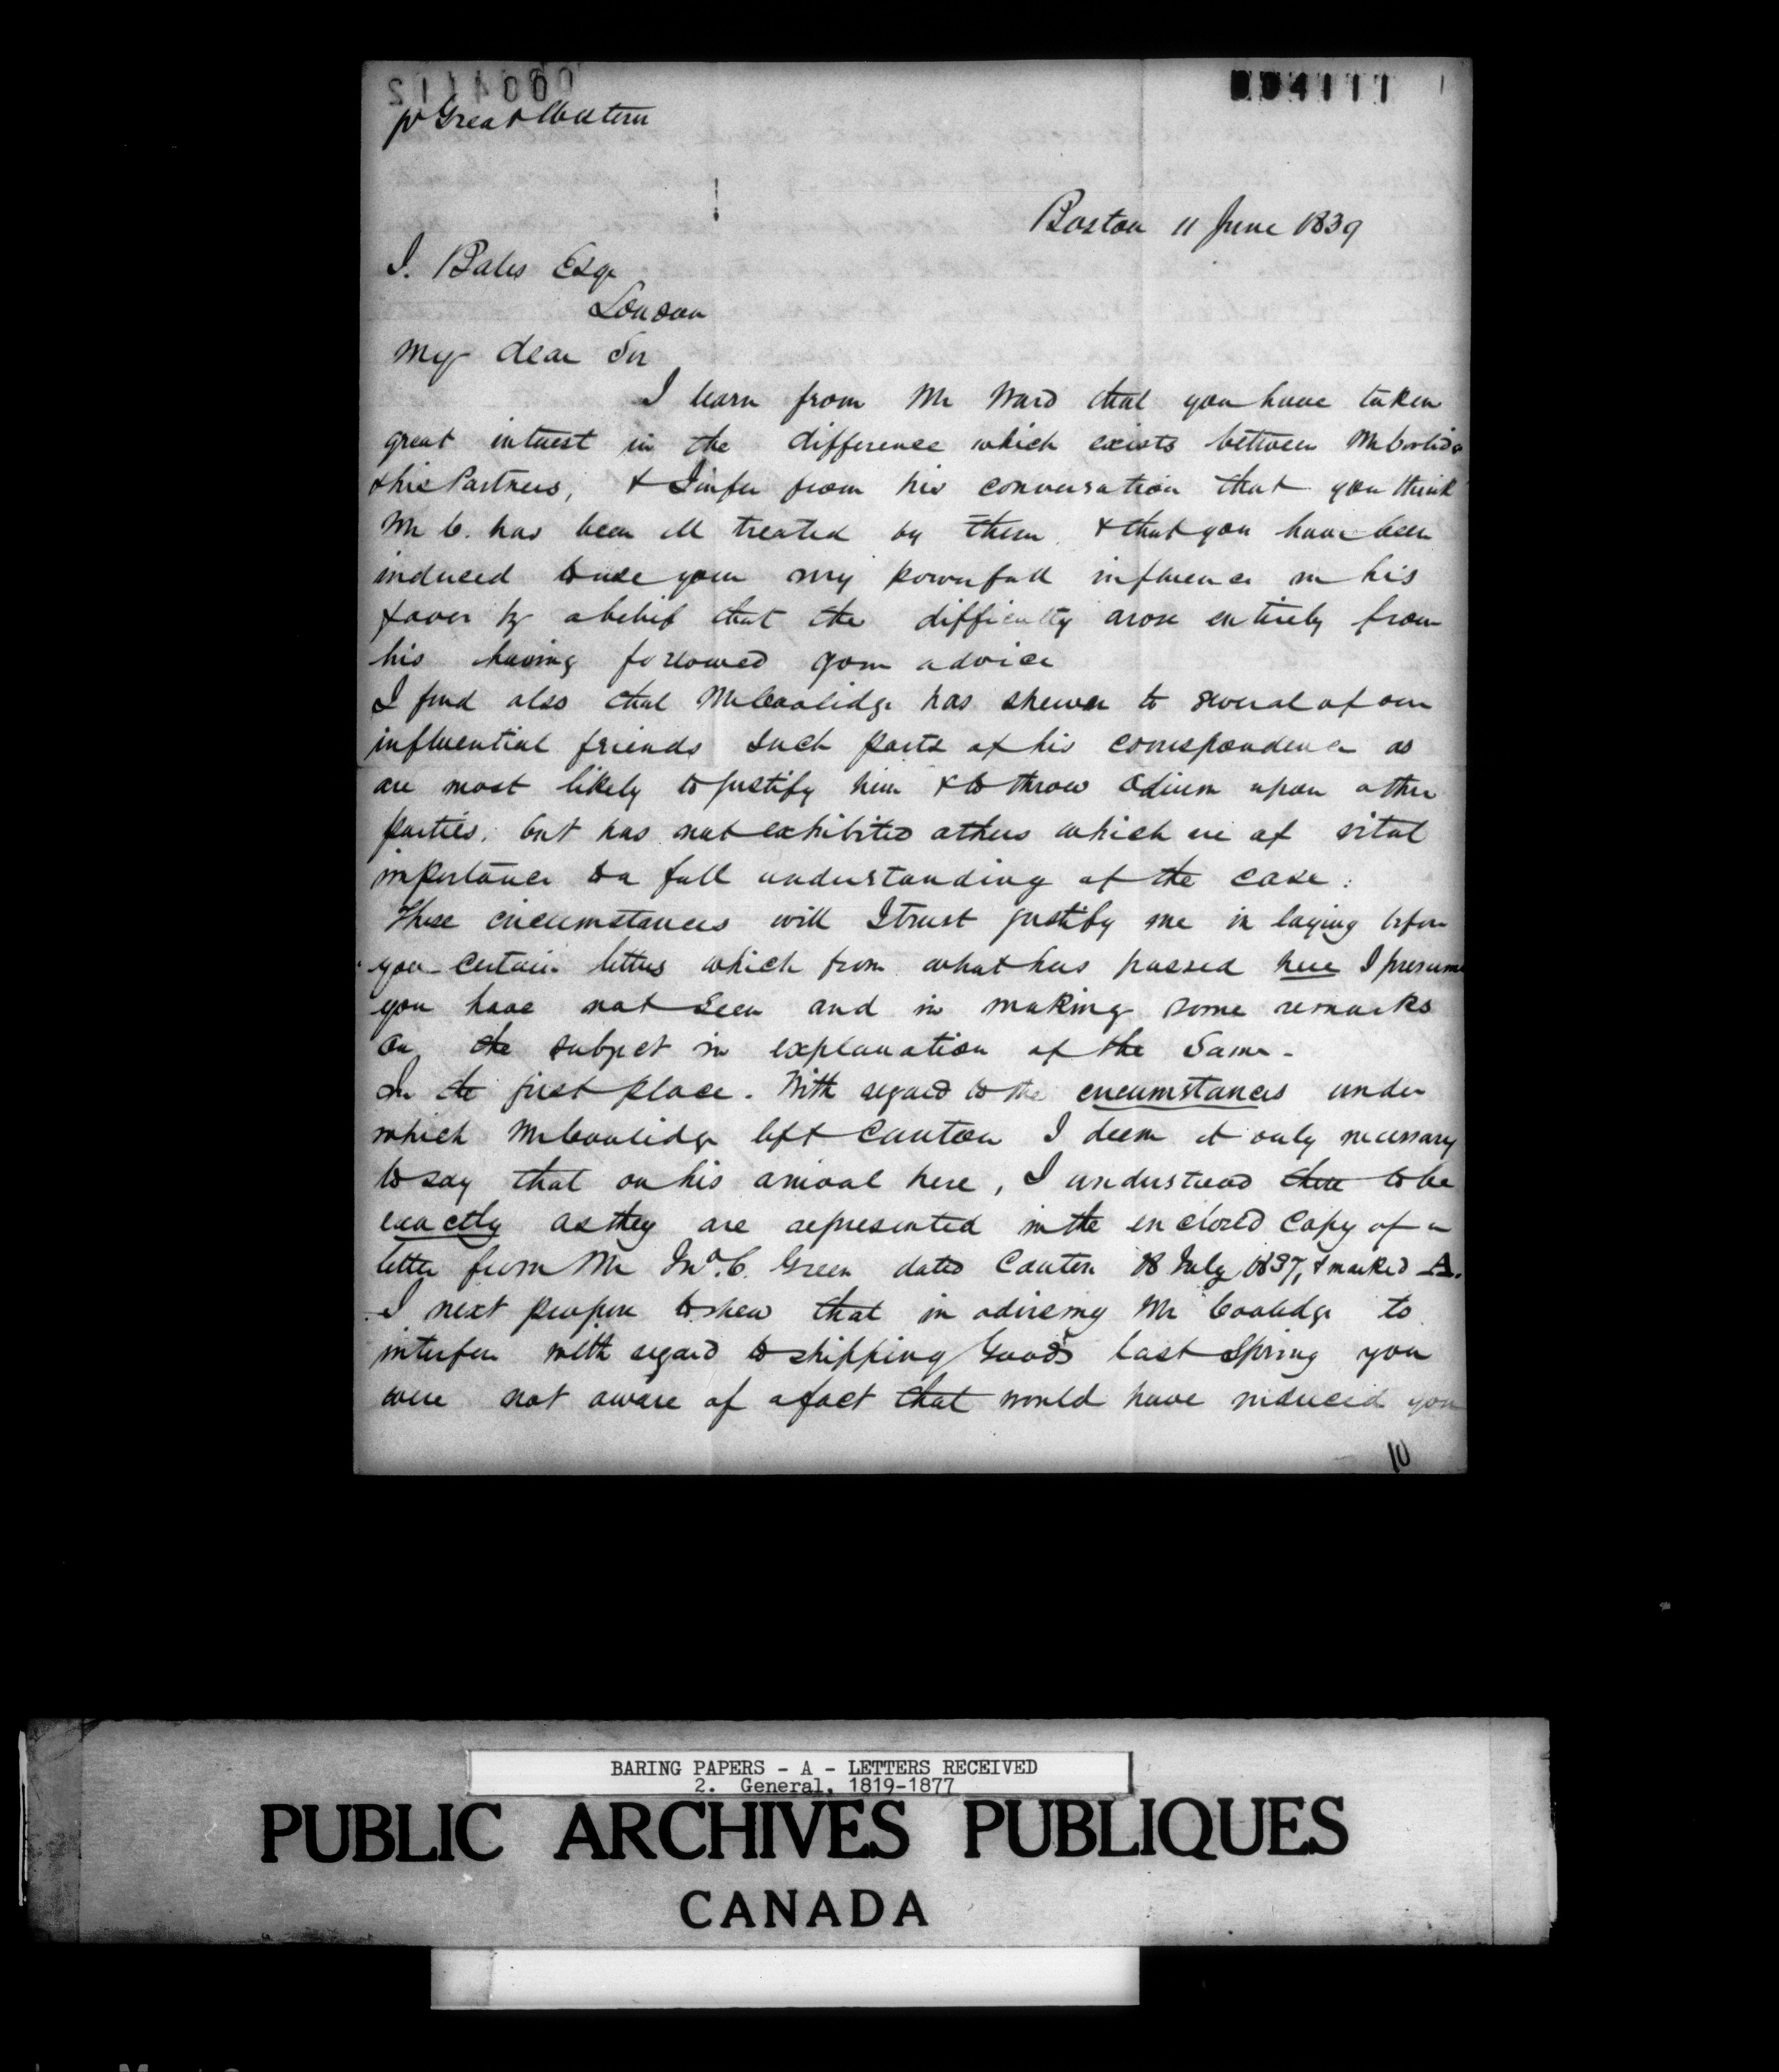 004111
pr Great Western
Boston 11 June 1839
J. Bates Esqr
London
My dear Sir
I learn from Mr Ward that you have taken
great interest in the difference which exists between Mr Coolidge
& his Partners, & I infer from his conversation that you think
Mr C. has been ill treated by them & that you have been
induced to use your very powerfull influence in his
favor by a belief that the difficulty arose entirely from
his having followed your advice
I find also that Mr Coolidge has shewn to several of our
influential friends such parts of his correspondence as
are most likely to justify him & to throw odium upon other
parties, but has not exhibited others which are of vital
importance to a full understanding of the case.
These circumstances will I trust justify me in laying before
you certain letters which from what has passed here I presume
you have not seen and in making some remarks
on the subject in explanation of the same.
In the first place. With regard to the circumstances under
which Mr Coolidge left Canton I deem it only necessary
to say that on his arrival here, I understood them to be
exactly as they are represented in the enclosed copy of a
letter from Mr Jno. C. Green dated Canton 18 July 1837, & marked A.
I next propose to shew that in advising Mr Coolidge to
interfere with regard to shipping Goods last Spring you
were not aware of a fact that would have induced you
10
BARING PAPERS - A - LETTERS RECEIVED
2. General, 1819-1877
PUBLIC ARCHIVES PUBLIQUES
CANADA